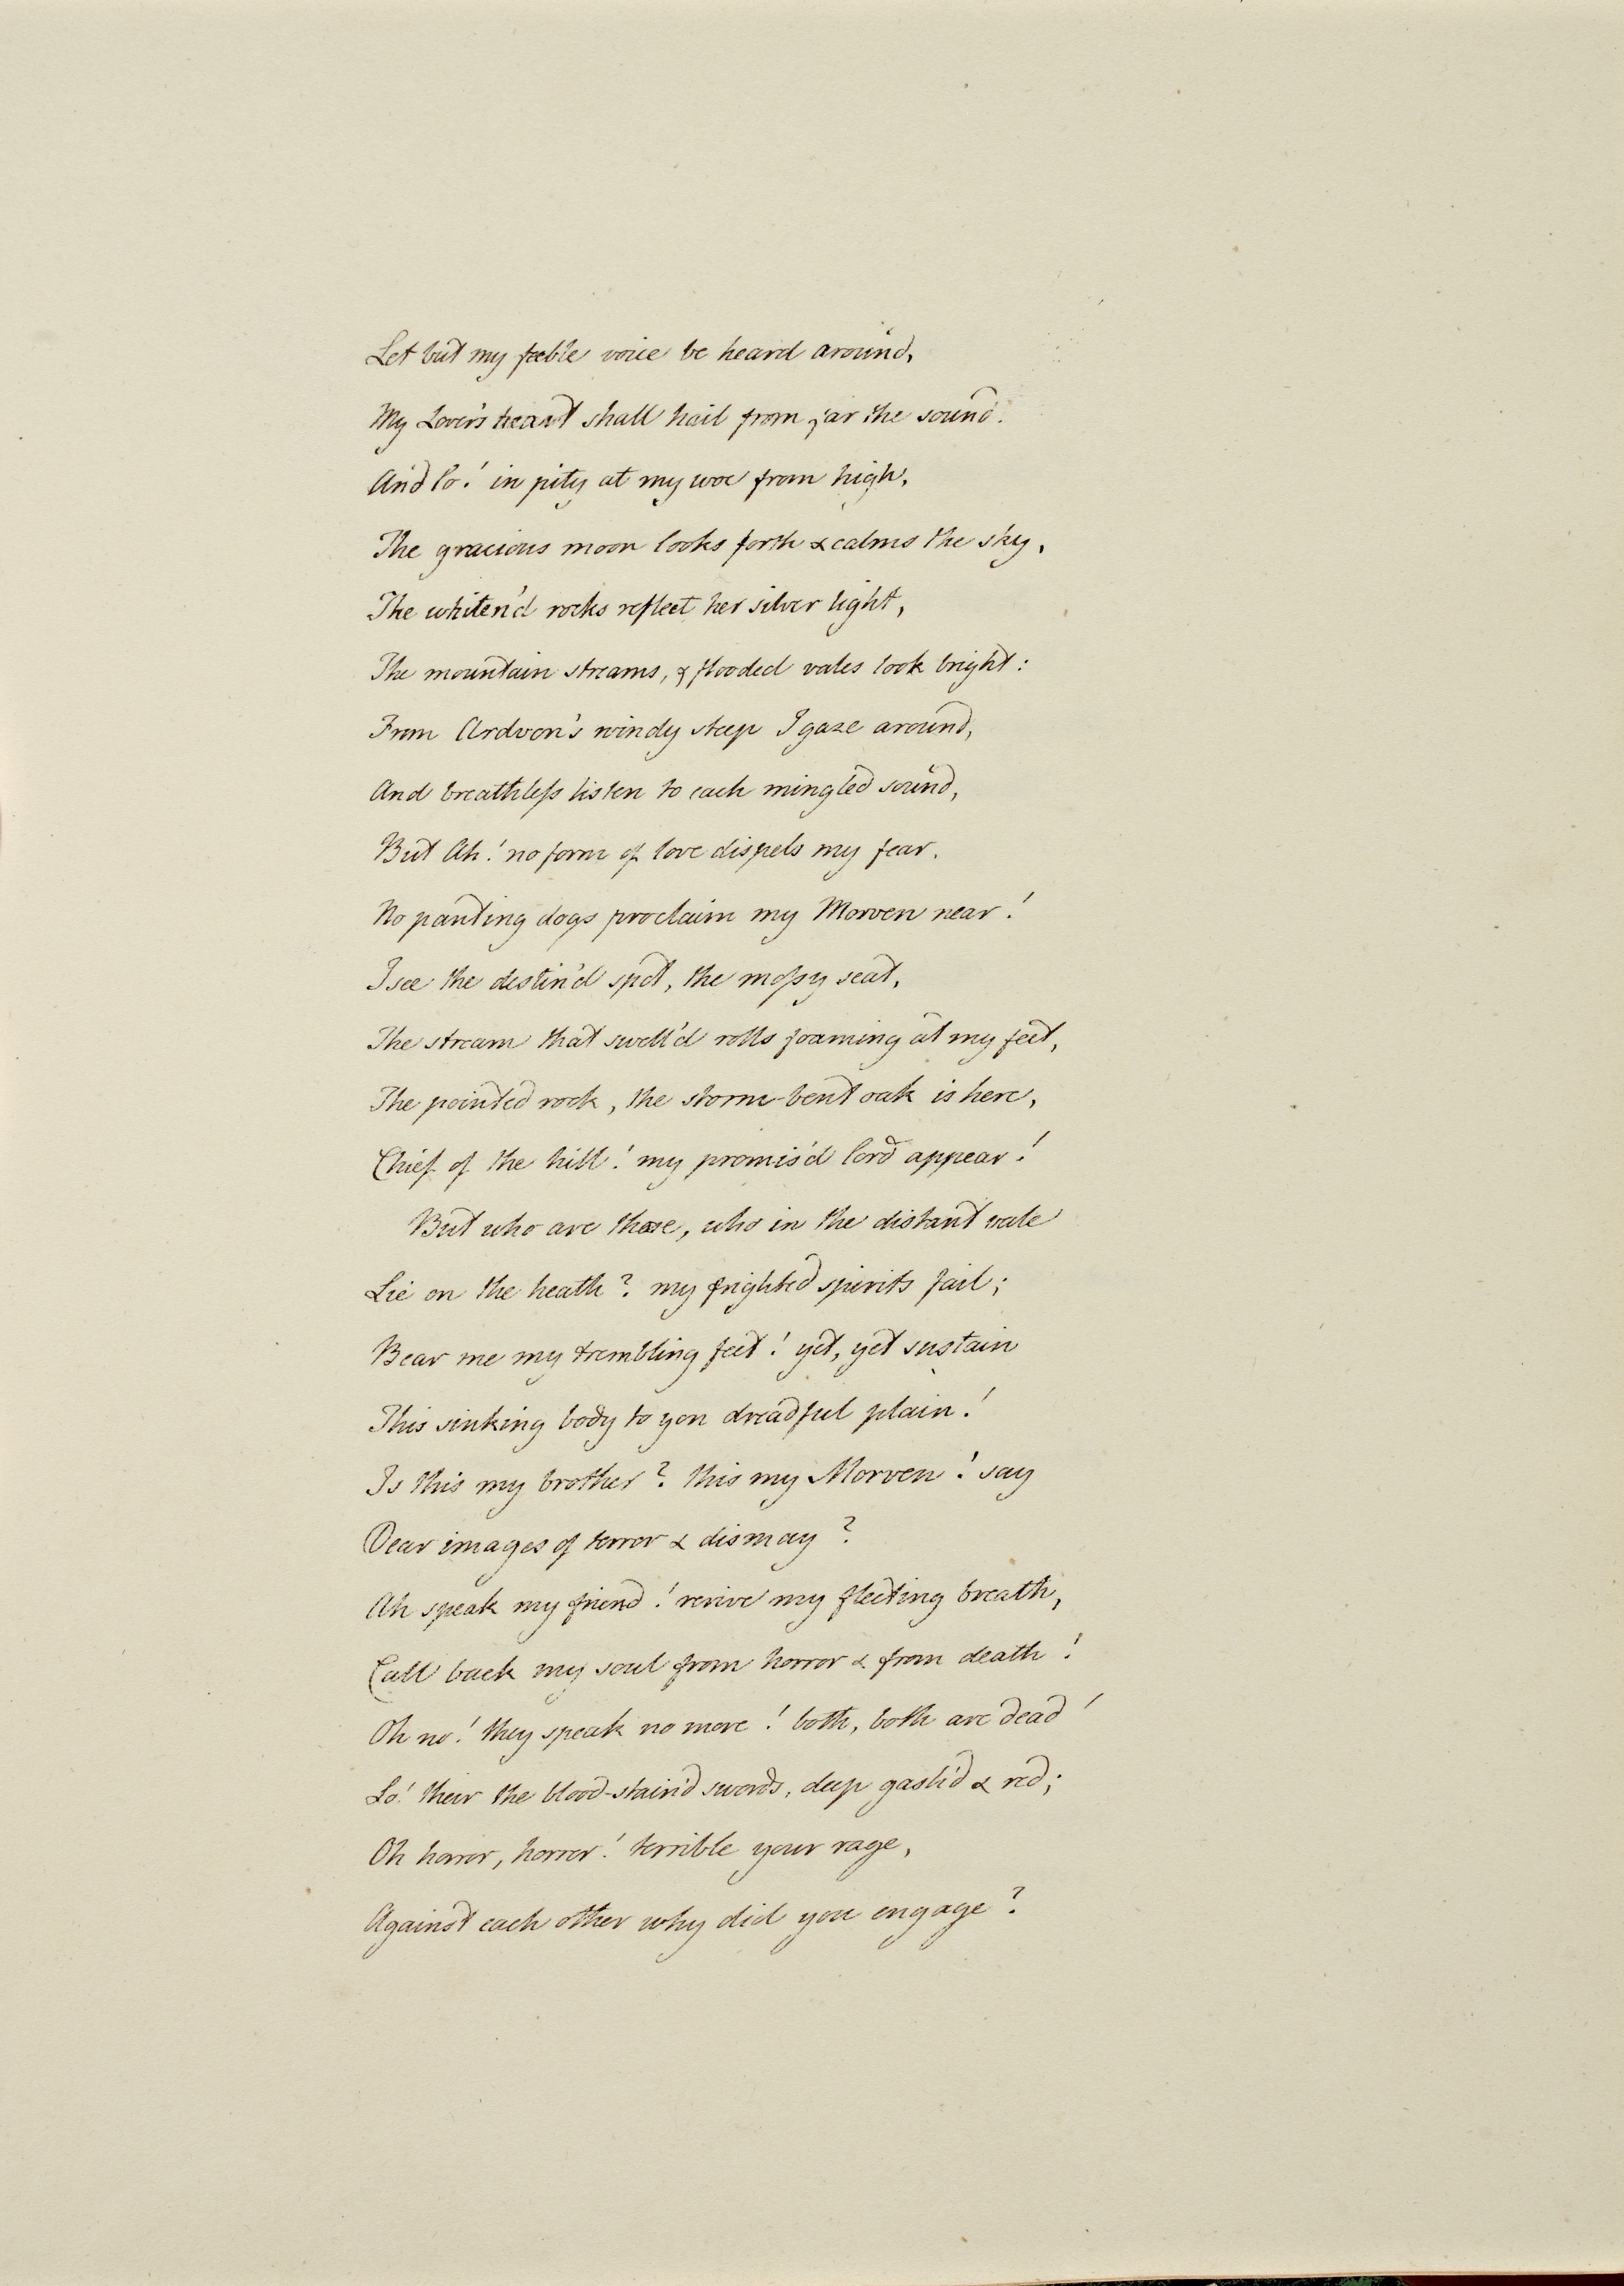 Let but my feeble voice be heard around,
My Lover's heart shall hail from far the sound.
And lo! in pity at my woe from high,
The gracious moon looks forth & calms the sky,
The whiten'd rocks reflect her silver light,
The mountain streams, & flooded vales look bright:
From Ardven's windy steep I gaze around,
And breathless listen to each mingled sound,
But Ah! no form of love dispels my fear,
No panting dogs proclaim my Morven near!
I see the destin'd spot, the mossy seat,
The stream that swell'd rolls foaming at my feet,
The pointed rock, the storm-bent oak is here,
Chief of the hill! my promis'd lord appear!
But who are those, who in the distant vale
Lie on the heath? my frighted spirits fail;
Bear me my trembling feet! yet, yet sustain
This sinking body to yon dreadful plain!
Is this my brother? this my Morven! say
Dear images of terror & dismay?
Ah speak my friend! revive my fleeting breath,
Call back my soul from horror & from death!
Oh no! they speak no more! both, both are dead!
Lo! their the blood-stain'd swords, deep gash'd & red;
Oh horror, horror! terrible your rage,
Against each other why did you engage?